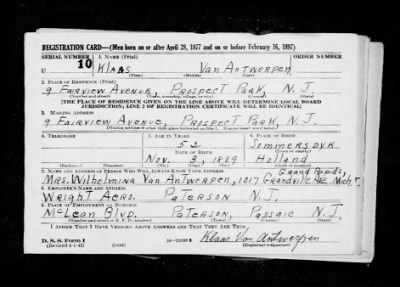 REGISTRATION CARD—(Men born on or after April 28, 1877 and on or before February 16, 1897)
SERIAL NUMBER 1. NAME (Print) ORDER NUMBER
U 10 KLAAS VAN ANTWERPEN
(First) (Middle) (Last)
2. PLACE OF RESIDENCE (Print)
9 FAIRVIEW AVENUE, PROSPECT PARK, N. J.
(Number and street) (Town, township, village, or city) (County) (State)
[THE PLACE OF RESIDENCE GIVEN ON THE LINE ABOVE WILL DETERMINE LOCAL BOARD
JURISDICTION; LINE 2 OF REGISTRATION CERTIFICATE WILL BE IDENTICAL]
3. MAILING ADDRESS
9 FAIRVIEW AVENUE, PROSPECT PARK, N. J.
(Mailing address if other than place indicated on line 2. If same insert word same)
4. TELEPHONE 5. AGE IN YEARS 6. PLACE OF BIRTH
52 SOMMERSDYK
DATE OF BIRTH (Town or county)
NOV. 3, 1889 HOLLAND
(Mo.) (Day) (Yr.) (State or country)
7. NAME AND ADDRESS OF PERSON WHO WILL ALWAYS KNOW YOUR ADDRESS GRAND RAPIDS,
MRS. WILHELMINA VAN ANTWERPEN, 1017 GRANDVILLE AVE MICH.
8. EMPLOYER'S NAME AND ADDRESS
WRIGHT AERO. PATERSON N. J.
9. PLACE OF EMPLOYMENT OR BUSINESS
MCLEAN BLVD. PATERSON, PASSAIC N. J.
(Number and street or R. F. D. number) (Town) (County) (State)
I AFFIRM THAT I HAVE VERIFIED ABOVE ANSWERS AND THAT THEY ARE TRUE.
D. S. S. Form 1 Klaas Van Antwerpen
(Revised 4-1-42) (over) (Registrant's signature)